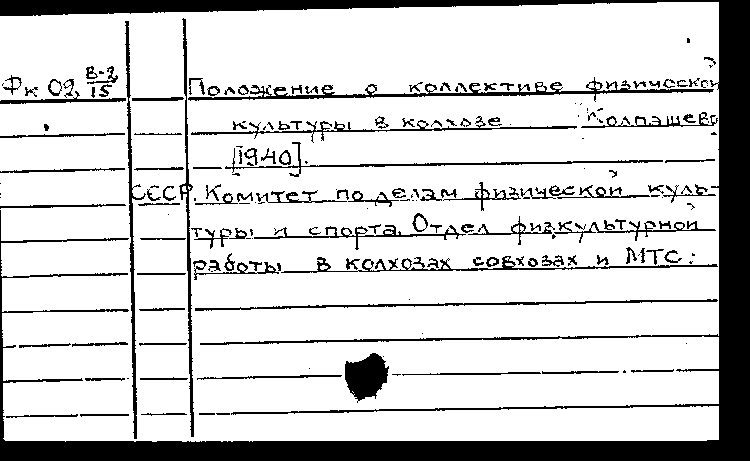 Фк 02, В-2/15 Положение о коллективе физической
культуры в колхозе Колпашево
[1940].
СССР. Комитет по делам физической куль-
туры и спорта. Отдел физкультурной
работы в колхозах совхозах и МТС: